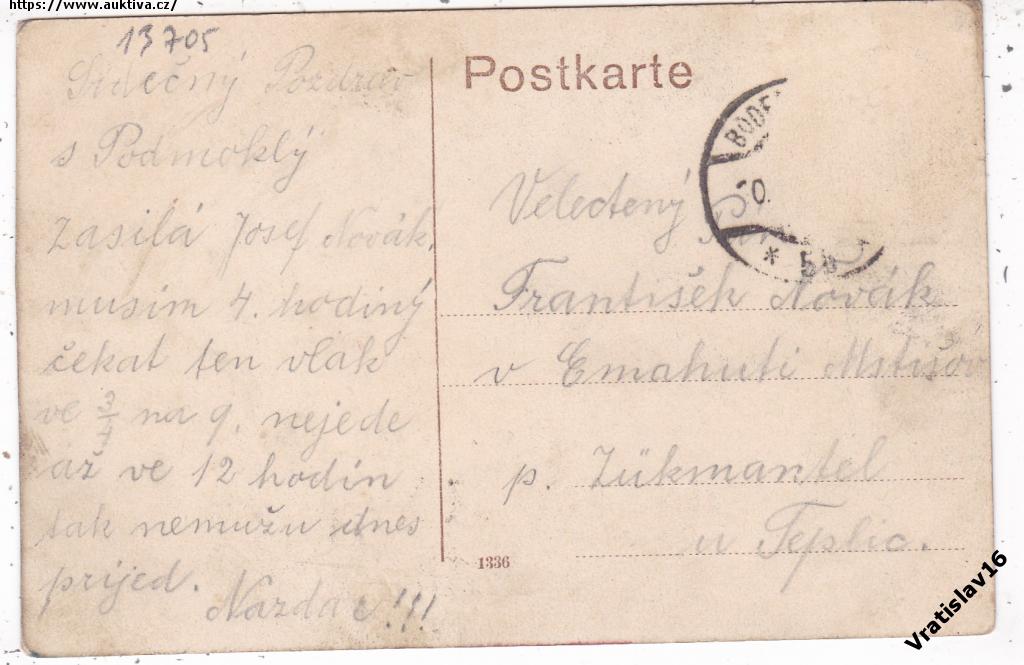 https://www.auktiva.cz/
13705
Srdečný Pozdrav
s Podmoklý
Zasílá Josef Novák.
musím 4. hodiný
čekat ten vlak
ve 3/4 na 9. nejede
až ve 12 hodin
tak nemužu dnes
prijed.
Nazdar!!!
Postkarte
BODE
* 5b
Velectený
František Novák
v Emahuti Mstišov
p. Zükmantel
u Teplic.
1336
Vratislav16